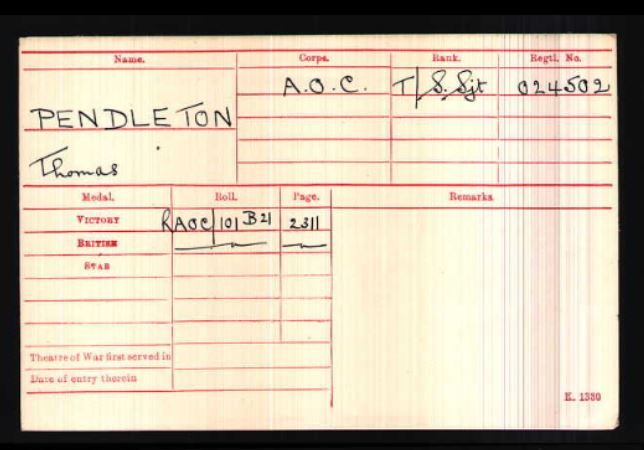 Name. Corps. Rank. Regtl. No.
A.O.C. T/S.Sjt 024502
PENDLETON
Thomas
Medal. Roll. Page. Remarks
VICTORY RAOC/101 B21 2311
BRITISH
STAR
Theatre of War first served in
Date of entry therein
K. 1380